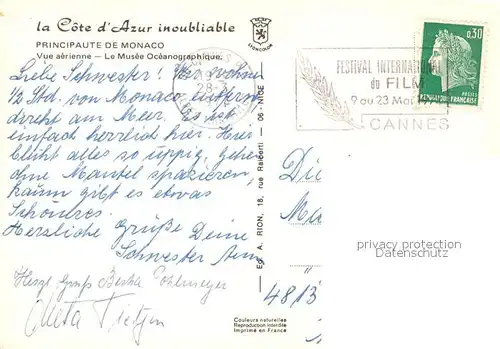 la Côte d'Azur inoubliable
PRINCIPAUTE DE MONACO
Vue aérienne — Le Musée Océanographique.
LEONCOLOR
Liebe Schwester! Wir wohnen
1/2 Std. von Monaco entfernt
direkt am Meer. Es ist
einfach herrlich hier. Hier
blüht alles so üppig, gehen
ohne Mantel spazieren,
kaum gibt es etwas
Schöneres.
Herzliche Grüße Deine
Schwester
Herzl. Gruß
Meta Tietjen
Ed. A. RION, 18, rue Raiberti — 06 - NICE
Couleurs naturelles
Reproduction interdite
Imprimé en France
FESTIVAL INTERNATIONAL
du FILM
9 au 23 Mai
CANNES
0,30
POSTES
REPUBLIQUE FRANÇAISE
privacy protection
Datenschutz